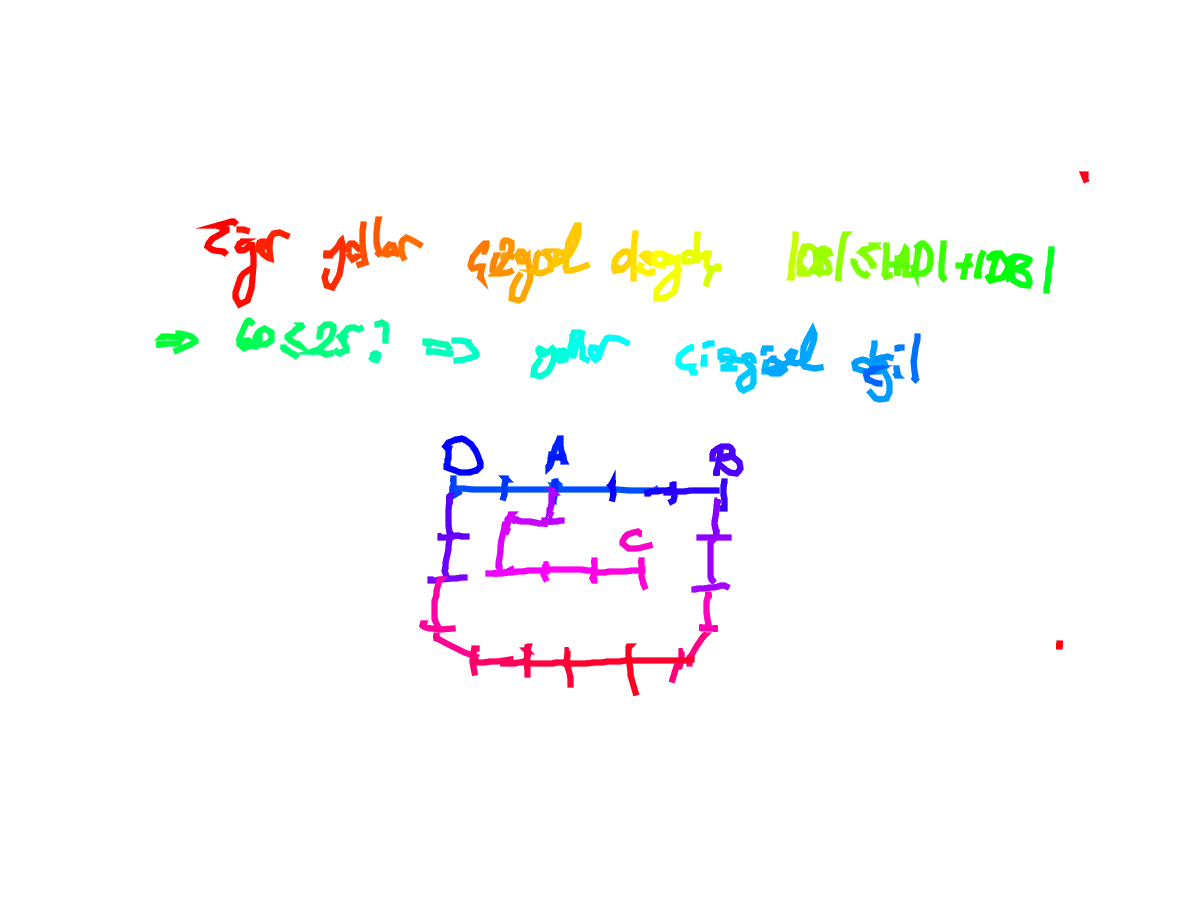 Eğer yollar çizgisel olsaydı, |DB| ≤ |AD| + |DB|
⇒ 60 ≤ 25? ⇒ yollar çizgisel değil
D A B
C